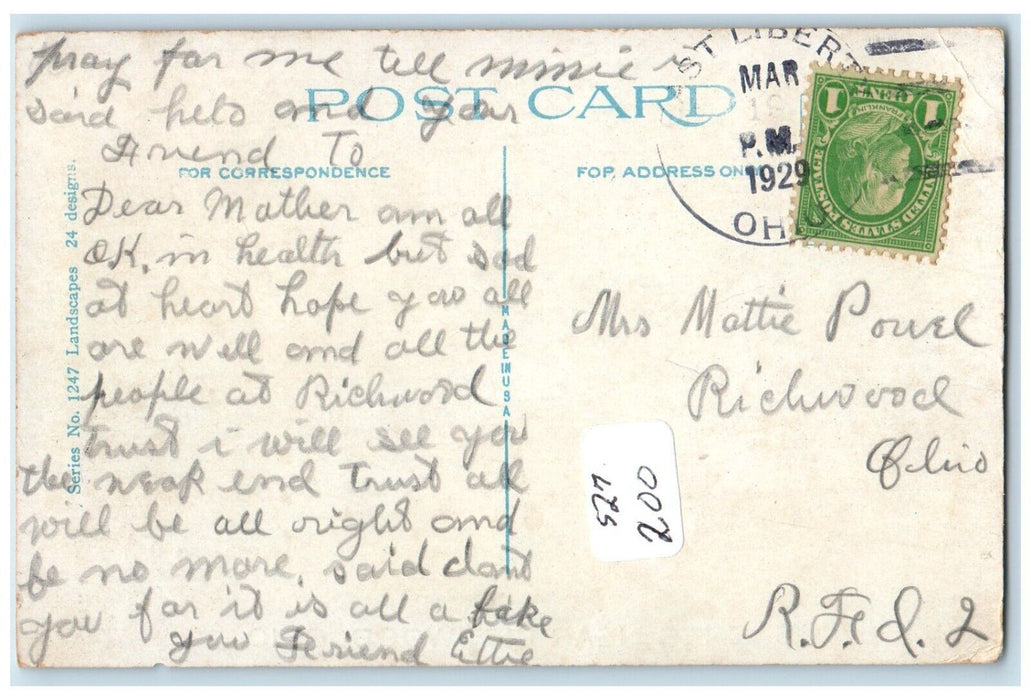 pray for me tell minie i
said helo and your
Friend To
POST CARD
FOR CORRESPONDENCE
FOR ADDRESS ON
Dear Mother am all
OK, in health but sad
at heart hope you all
are well and all the
people at Richwood
trust i will see you
the weak end trust all
will be all wright and
be no more, said dont
you for it is all a fake
you Feriend Ettie
Series No. 1247 Landscapes 24 designs.
MADE IN USA
ST LIBERT
MAR
P.M.
1929
OHIO
1 CENT 1
FRANKLIN
UNITED STATES POSTAGE
Mrs Mattie Powel
Richwood
Ohio
R.F.d. 2
527
200